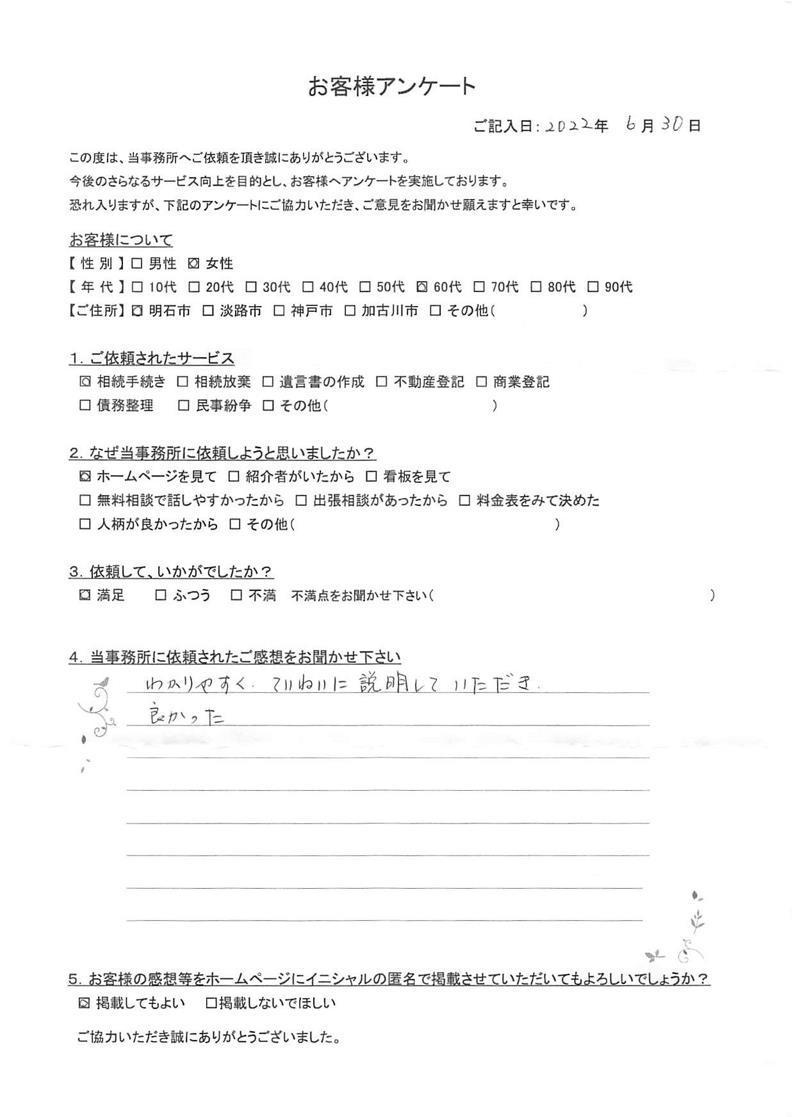 お客様アンケート
ご記入日：2022年 6月30日
この度は、当事務所へご依頼を頂き誠にありがとうございます。
今後のさらなるサービス向上を目的とし、お客様へアンケートを実施しております。
恐れ入りますが、下記のアンケートにご協力いただき、ご意見をお聞かせ願えますと幸いです。
お客様について
【 性 別 】 □ 男性 ☑ 女性
【 年 代 】 □ 10代 □ 20代 □ 30代 □ 40代 □ 50代 ☑ 60代 □ 70代 □ 80代 □ 90代
【ご住所】 ☑ 明石市 □ 淡路市 □ 神戸市 □ 加古川市 □ その他（ ）
１．ご依頼されたサービス
☑ 相続手続き □ 相続放棄 □ 遺言書の作成 □ 不動産登記 □ 商業登記
□ 債務整理 □ 民事紛争 □ その他（ ）
２．なぜ当事務所に依頼しようと思いましたか？
☑ ホームページを見て □ 紹介者がいたから □ 看板を見て
□ 無料相談で話しやすかったから □ 出張相談があったから □ 料金表をみて決めた
□ 人柄が良かったから □ その他（ ）
３．依頼して、いかがでしたか？
☑ 満足 □ ふつう □ 不満 不満点をお聞かせ下さい（ ）
４．当事務所に依頼されたご感想をお聞かせ下さい
わかりやすく、ていねいに説明していただき、
良かった
５．お客様の感想等をホームページにイニシャルの匿名で掲載させていただいてもよろしいでしょうか？
☑ 掲載してもよい □掲載しないでほしい
ご協力いただき誠にありがとうございました。